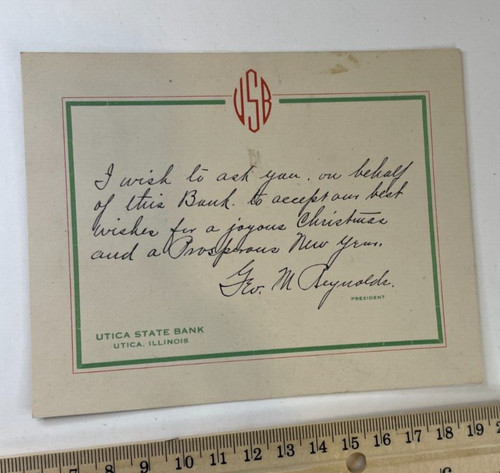 USB
I wish to ask you, on behalf
of this Bank, to accept our best
wishes for a joyous Christmas
and a Prosperous New Year.
Geo. M Reynolds.
PRESIDENT
UTICA STATE BANK
UTICA, ILLINOIS
7 8 9 10 11 12 13 14 15 16 17 18 19